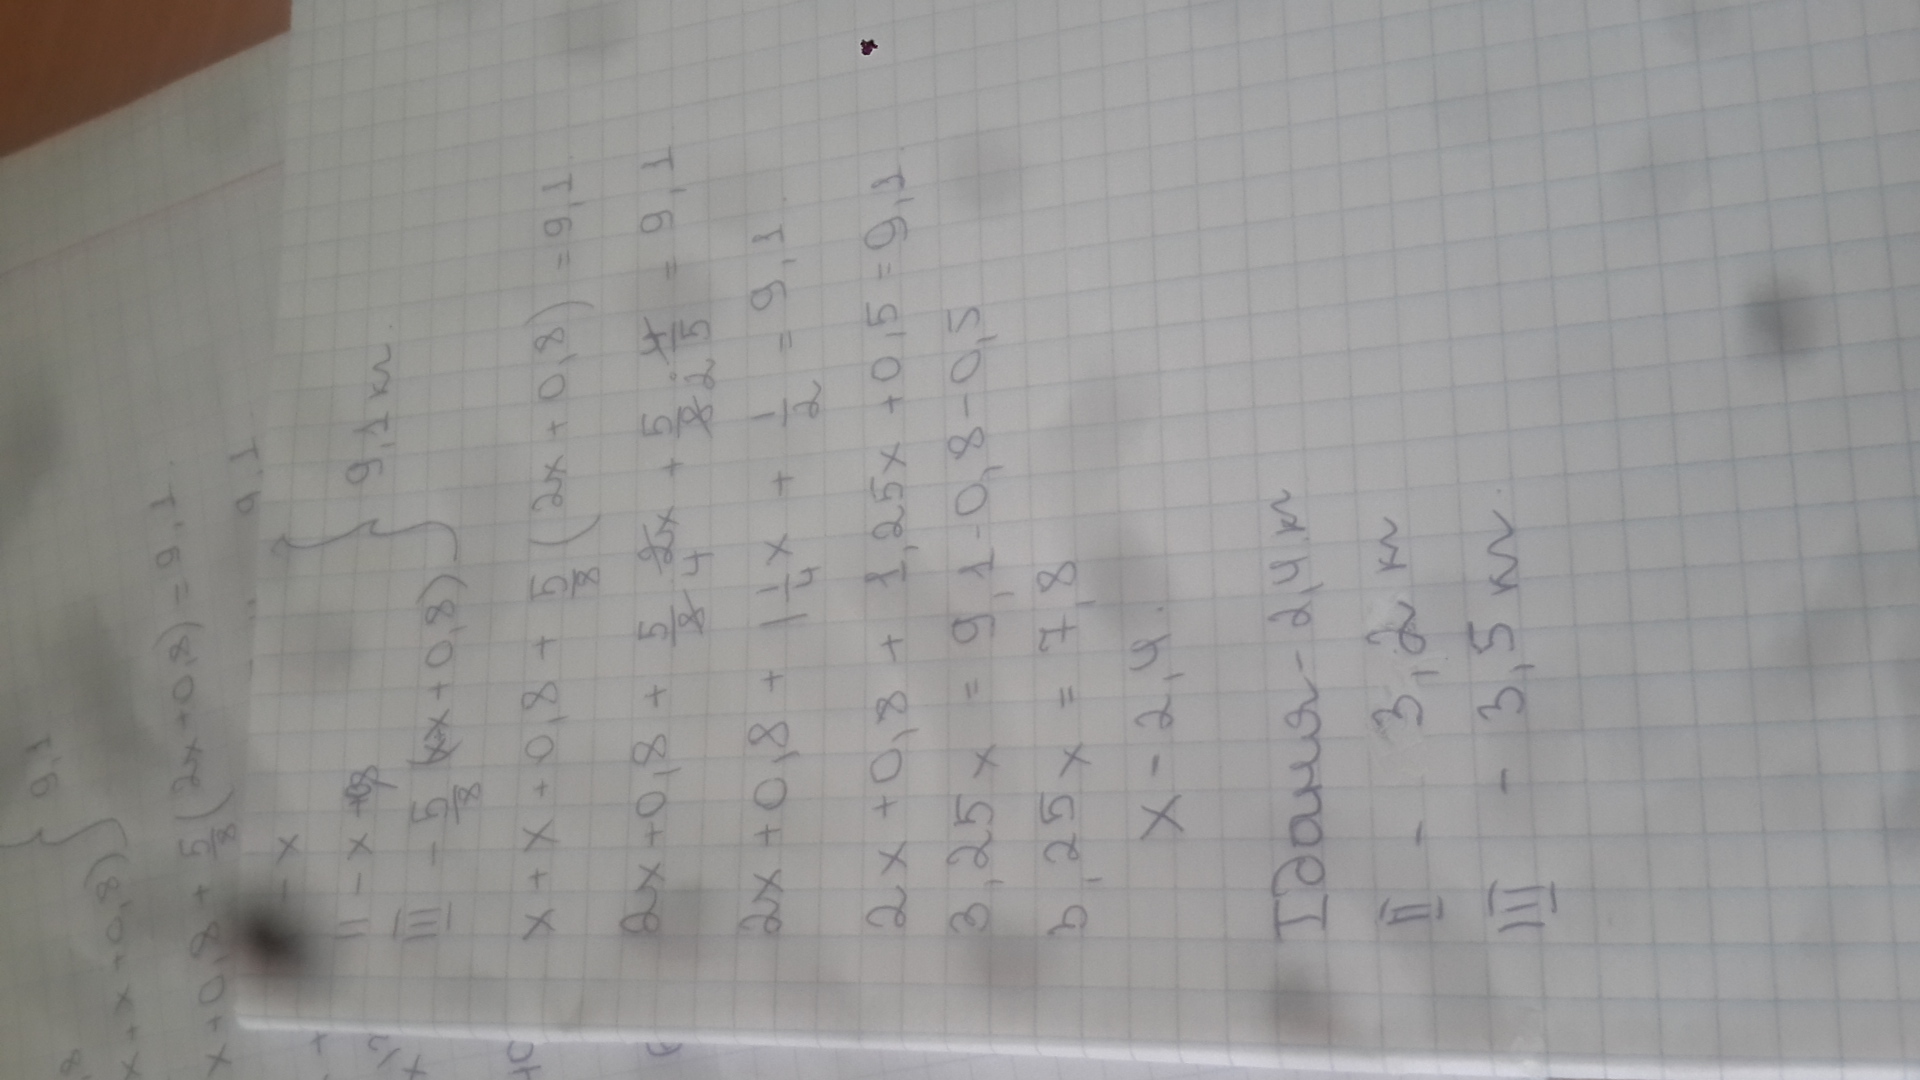 - x
II - x + 0,8 } 9,1 км.
III - 5/8 (x+x+0,8)
x + x + 0,8 + 5/8 (2x + 0,8) = 9,1
2x + 0,8 + 5/8 · 2x/4 + 5/8 · 4/5 = 9,1
2x + 0,8 + 1 1/4 x + 1/2 = 9,1.
2x + 0,8 + 1,25x + 0,5 = 9,1.
3,25x = 9,1 - 0,8 - 0,5
3,25x = 7,8
x - 2,4.
I - 2,4 км
II - 3,2 км
III - 3,5 км.
9,1
x + x + 0,8)
x + 0,8 + 5/8 (2x + 0,8) = 9,1.
9,1